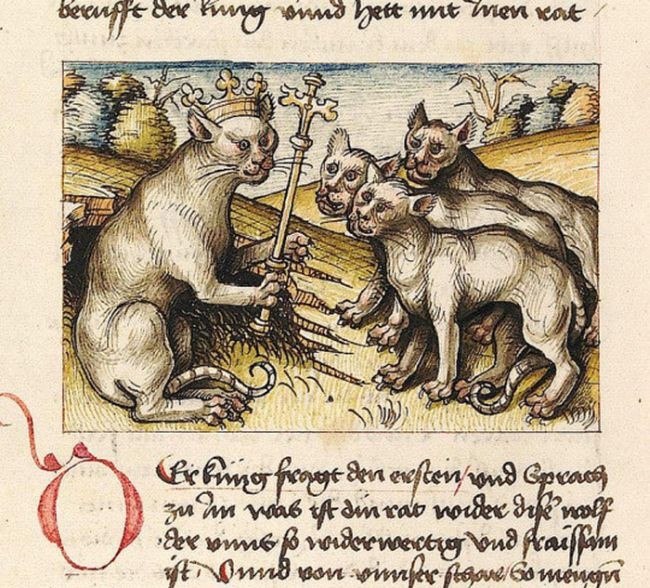 berüfft der küng vnnd hett mit Inen rat /
Er küng fragt den ersten / vnd Sprach
zu Im was ist din rat wider dise wolf
der vnns so widerwertig vnd fraissam
ist . Vnnd von vnnser schar / So menigñ